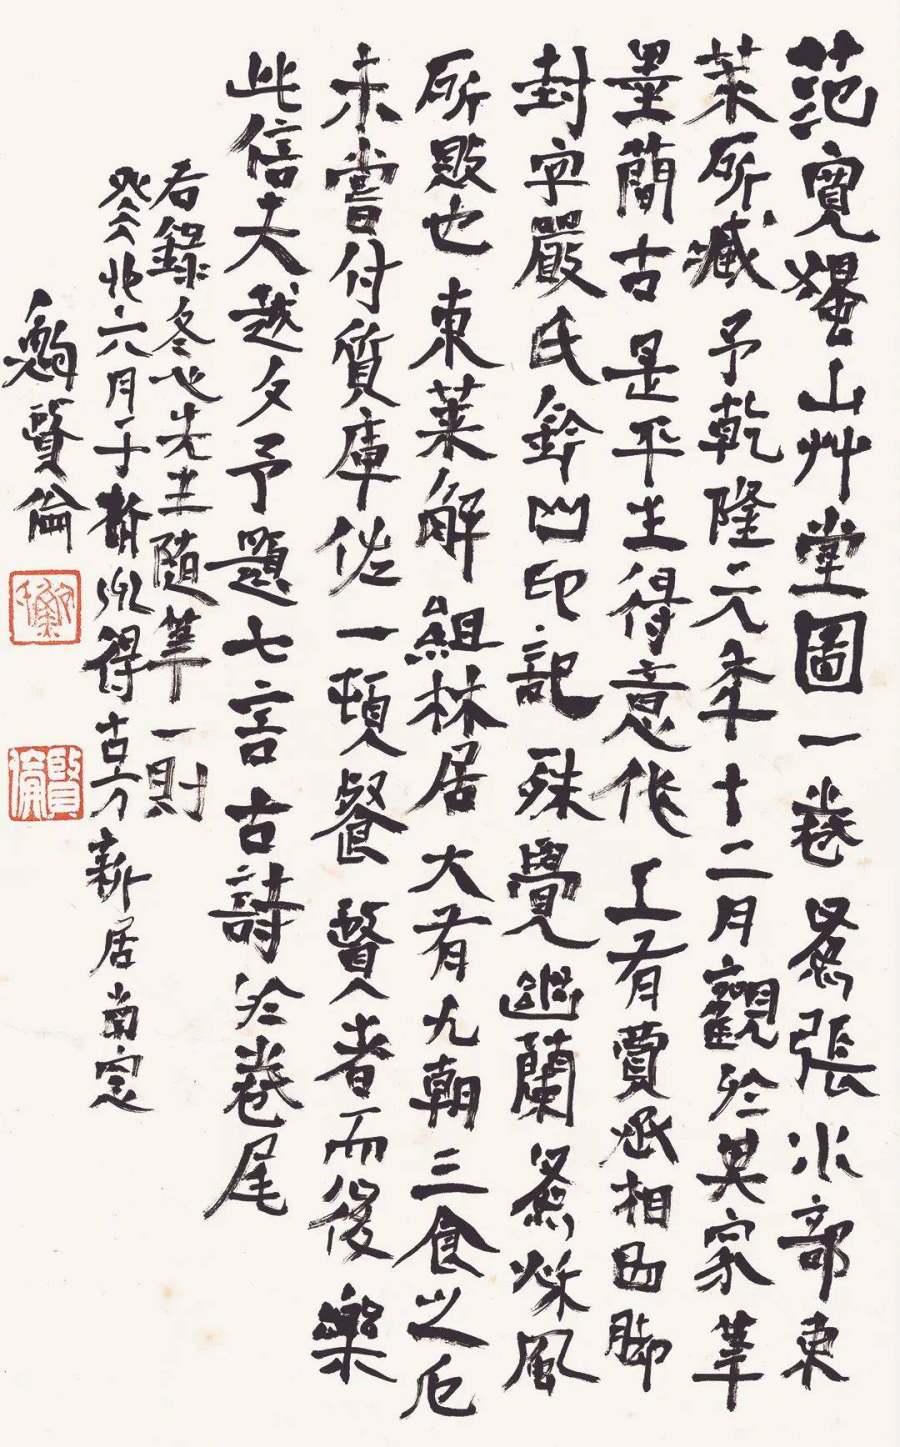 范寬蜀山艸堂圖一卷為張水部東
萊所藏予乾隆元年十二月觀於其家筆
墨簡古是平生得意作上有賈丞相四腳
封字嚴氏斜凹印記殊覺幽蘭為秋風
所敗也東萊解組林居大有九朝三食之厄
未嘗付質庫佐一頓餐賢者而後樂
此信夫越夕予題七言古詩於卷尾
右錄冬心先生隨筆一則
癸卯六月于齊州得古方新居南窗
賢倫